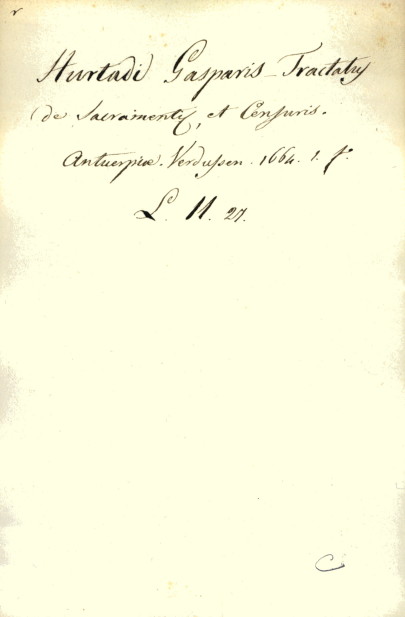 r
Hurtadi Gasparis - Tractatus
de Sacramentis, et Censuris.
Antuerpiæ. Verdussen. 1664. 1. fo.
L. 11. 27.
C